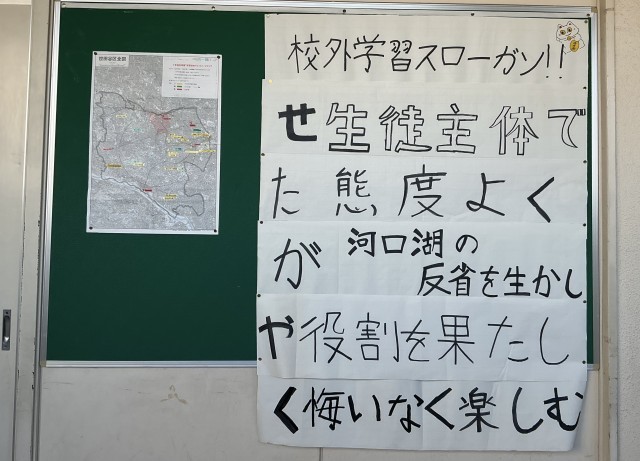 世田谷区全図
校外学習スローガン!!
せ生徒主体で
た態度よく
が河口湖の
反省を生かし
や役割を果たし
く悔いなく楽しむ